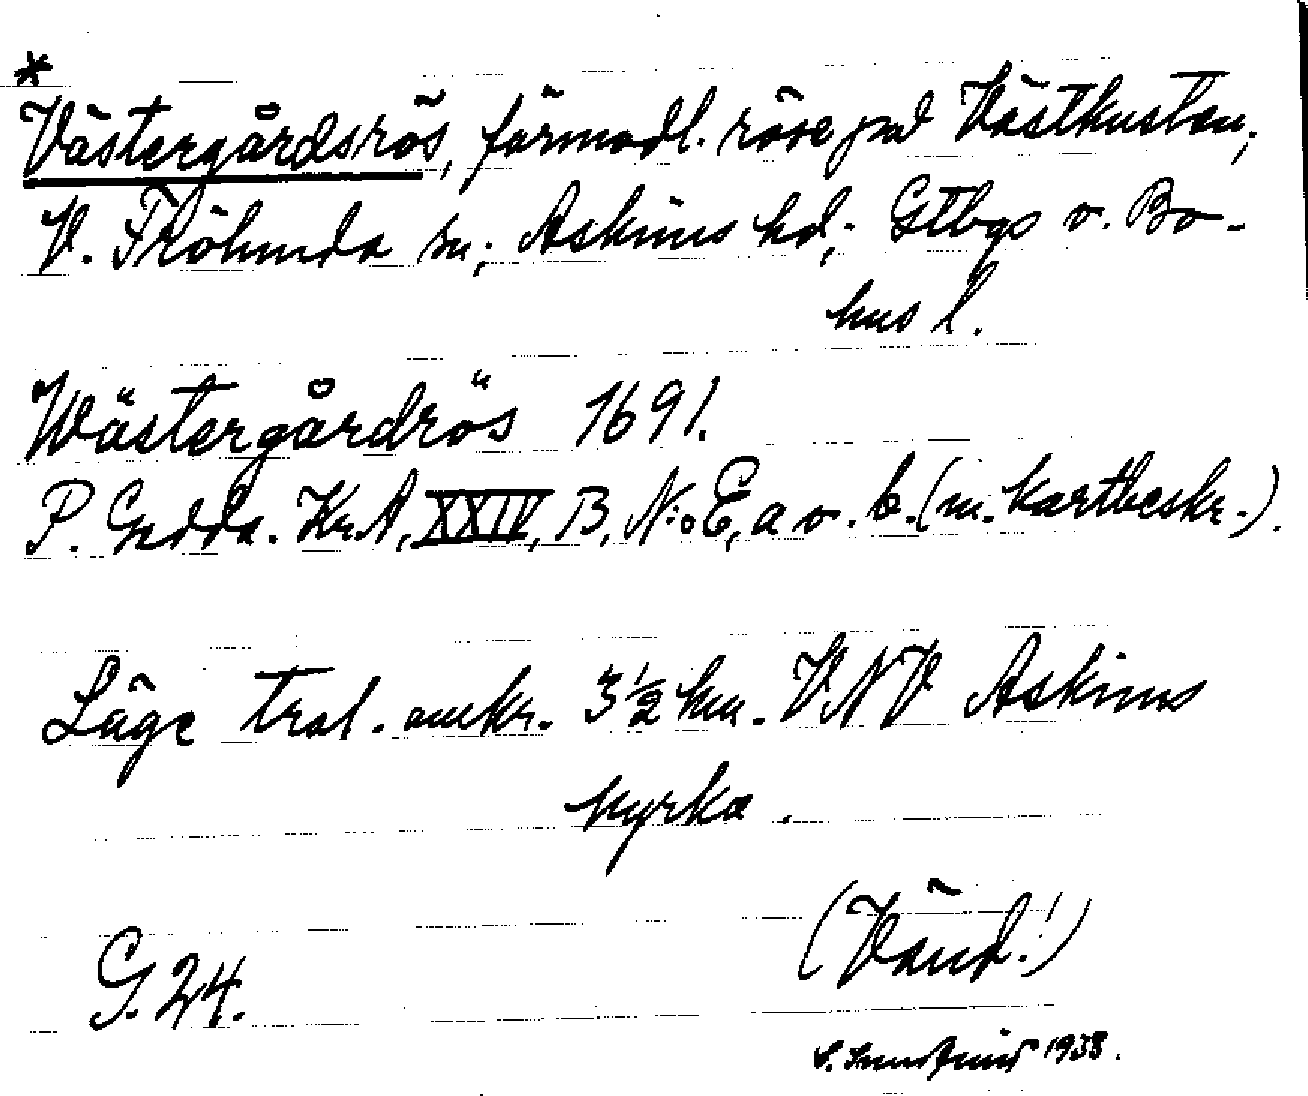 *
Västergårdsrös, förmodl. röse på Västkusten,
V. Frölunda sn; Askims hd; Gtbgs o. Bo-
hus l.
Wästergårdrös 1691.
P. Gedda. Kr.A, XXIV, B, N:o E, a o. b. (m. kartbeskr.).
Läge trol. omkr. 3 1/2 km. VNV Askims
kyrka.
(Vänd!)
G. 24.
1938.